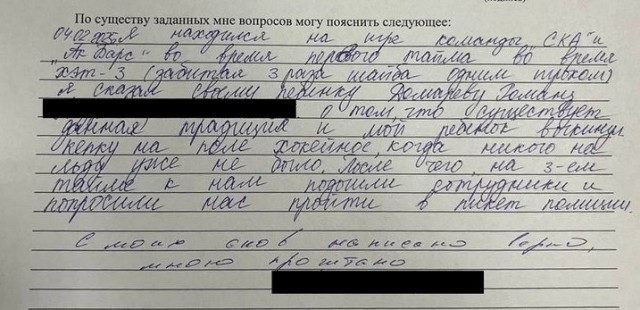 По существу заданных мне вопросов могу пояснить следующее:
04.02.2025 Я находился на игре команды "СКА" и
"Ак Барс" во время первого тайма во время
хэт-3 (забитая 3 раза шайба одним игроком)
я сказал своему ребенку
о том что существует
данная традиция и мой ребенок выкинул
кепку на поле хоккейное, когда никого на
льду уже не было. После чего на 3-ем
тайме к нам подошли сотрудники и
попросили нас пройти в пикет полиции.
С моих слов написано верно,
мною прочитано